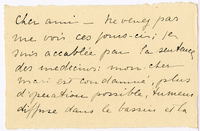 Cher ami — Ne venez pas
me voir ces jours-ci; je
suis accablée par la sentence
des médecins: mon cher
mari est condamné, plus
d'opération possible, tumeur
diffuse dans le bassin et la